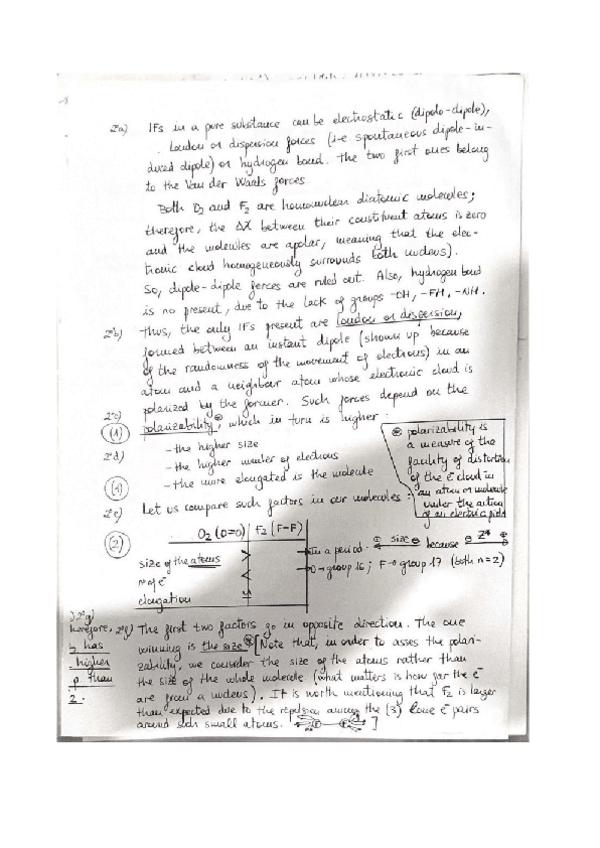 2ºa) IFs in a pure substance can be electrostatic (dipolo-dipole),
London or dispersion forces (i-e spontaneous dipole-in-
duced dipole) or hydrogen bond. The two first ones belong
to the Van der Waals forces
Both O2 and F2 are homonuclear diatomic molecules;
therefore, the ΔX between their constituent atoms is zero
and the molecules are apolar, meaning that the elec-
tronic cloud homogeneously surrounds both nucleus).
So, dipole-dipole forces are ruled out. Also, hydrogen bond
is no present, due to the lack of groups -OH, -FH, -NH.
2ºb) Thus, the only IFs present are London or dispersion,
formed between an instant dipole (shown up because
of the randomness of the movement of electrons) in an
atom and a neighbour atom whose electronic cloud is
polarized by the former. Such forces depend on the
2ºc) polarizability⊛, which in turn is higher:
(1)
- the higher size
2ºd) - the higher number of electrons
(1) - the more elongated is the molecule
⊛ polarizability is
a measure of the
facility of distortion
of the e⁻ cloud in
an atom or molecule
under the action
of an electric field
2ºe) Let us compare such factors in our molecules:
(2)
O2 (O=O) | F2 (F-F)
size of the atoms >
nº of e⁻ <
elongation
In a period: size because Z*
O→group 16; F→group 17 (both n=2)
2ºg)
Therefore,
has
higher
than
2.
2ºf) The first two factors go in opposite direction. The one
winning is the size⊛ [Note that, in order to asses the polari-
zability, we consider the size of the atoms rather than
the size of the whole molecule (what matters is how far the e⁻
are from a nucleus). It is worth mentioning that F2 is larger
than expected due to the repulsion among the (3) lone e⁻ pairs
around such small atoms. ]